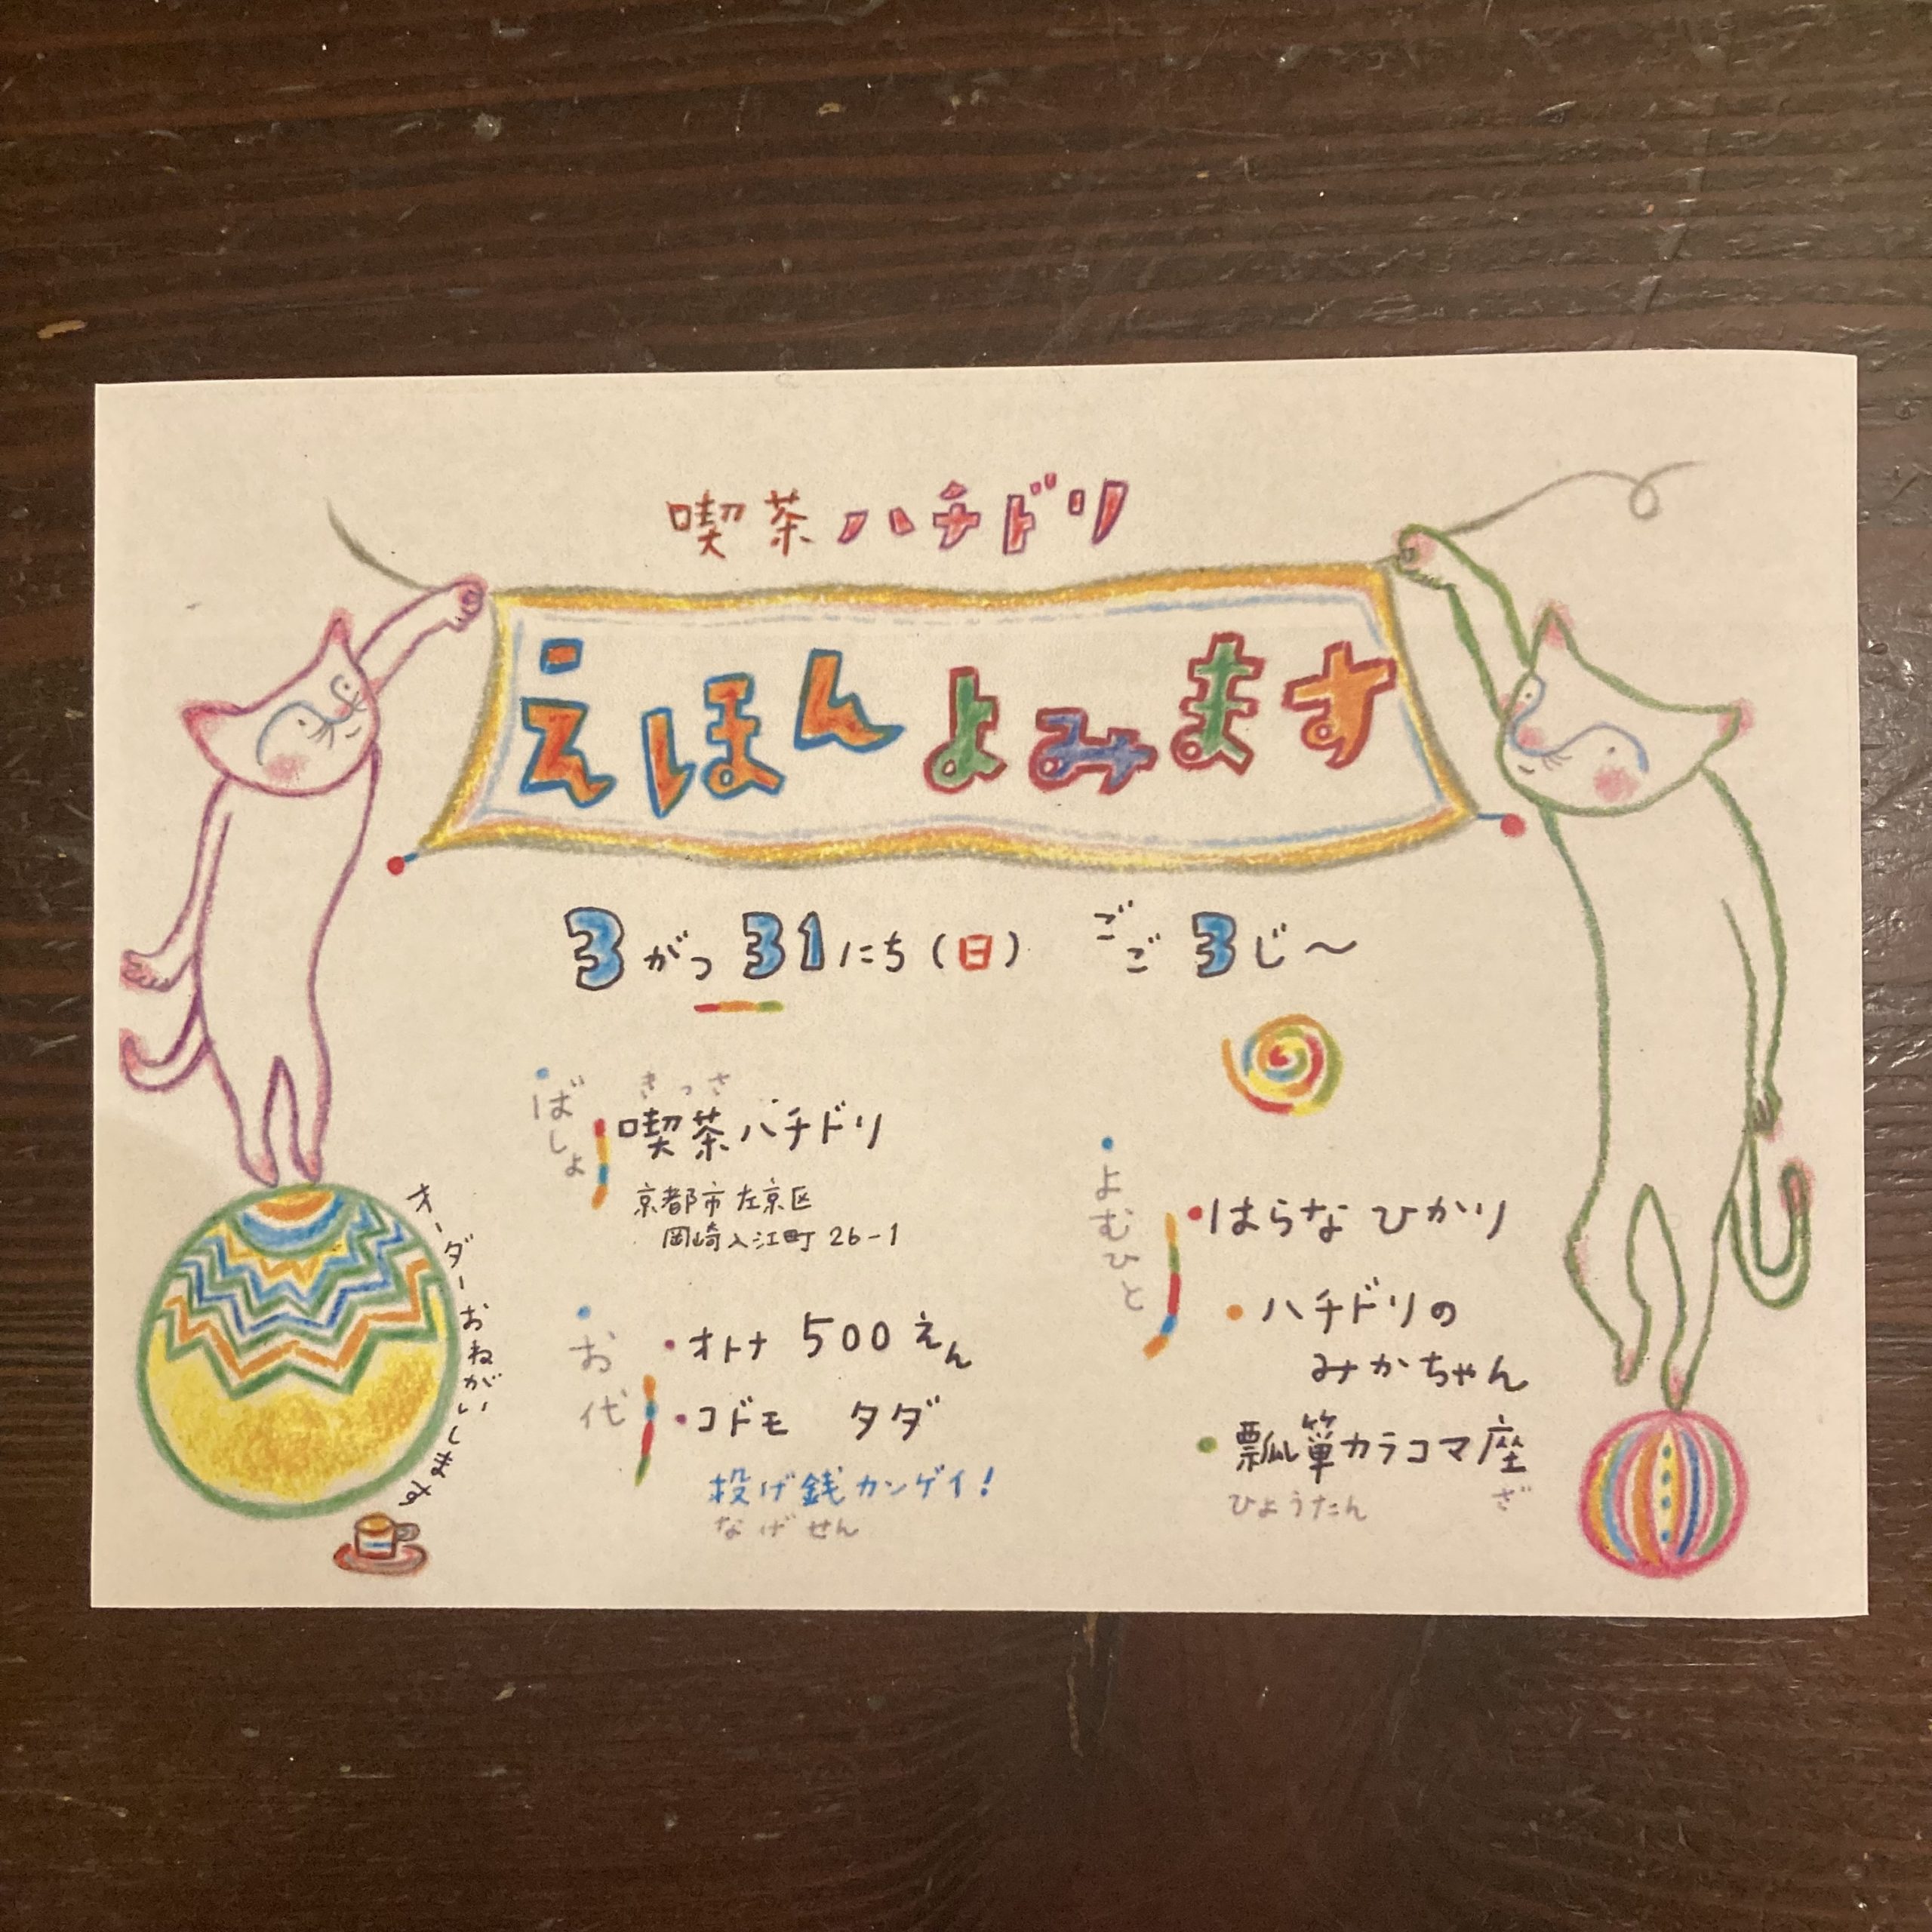 喫茶ハチドリ
えほんよみます
3がつ31にち(日) ごご3じ〜
ばしょ
きっさ
喫茶ハチドリ
京都市左京区
岡崎入江町26-1
お代
・オトナ 500えん
・コドモ タダ
投げ銭カンゲイ!
なげせん
よむひと
・はらなひかり
・ハチドリの
みかちゃん
・瓢箪カラコマ座
ひょうたん ざ
オーダーおねがいします